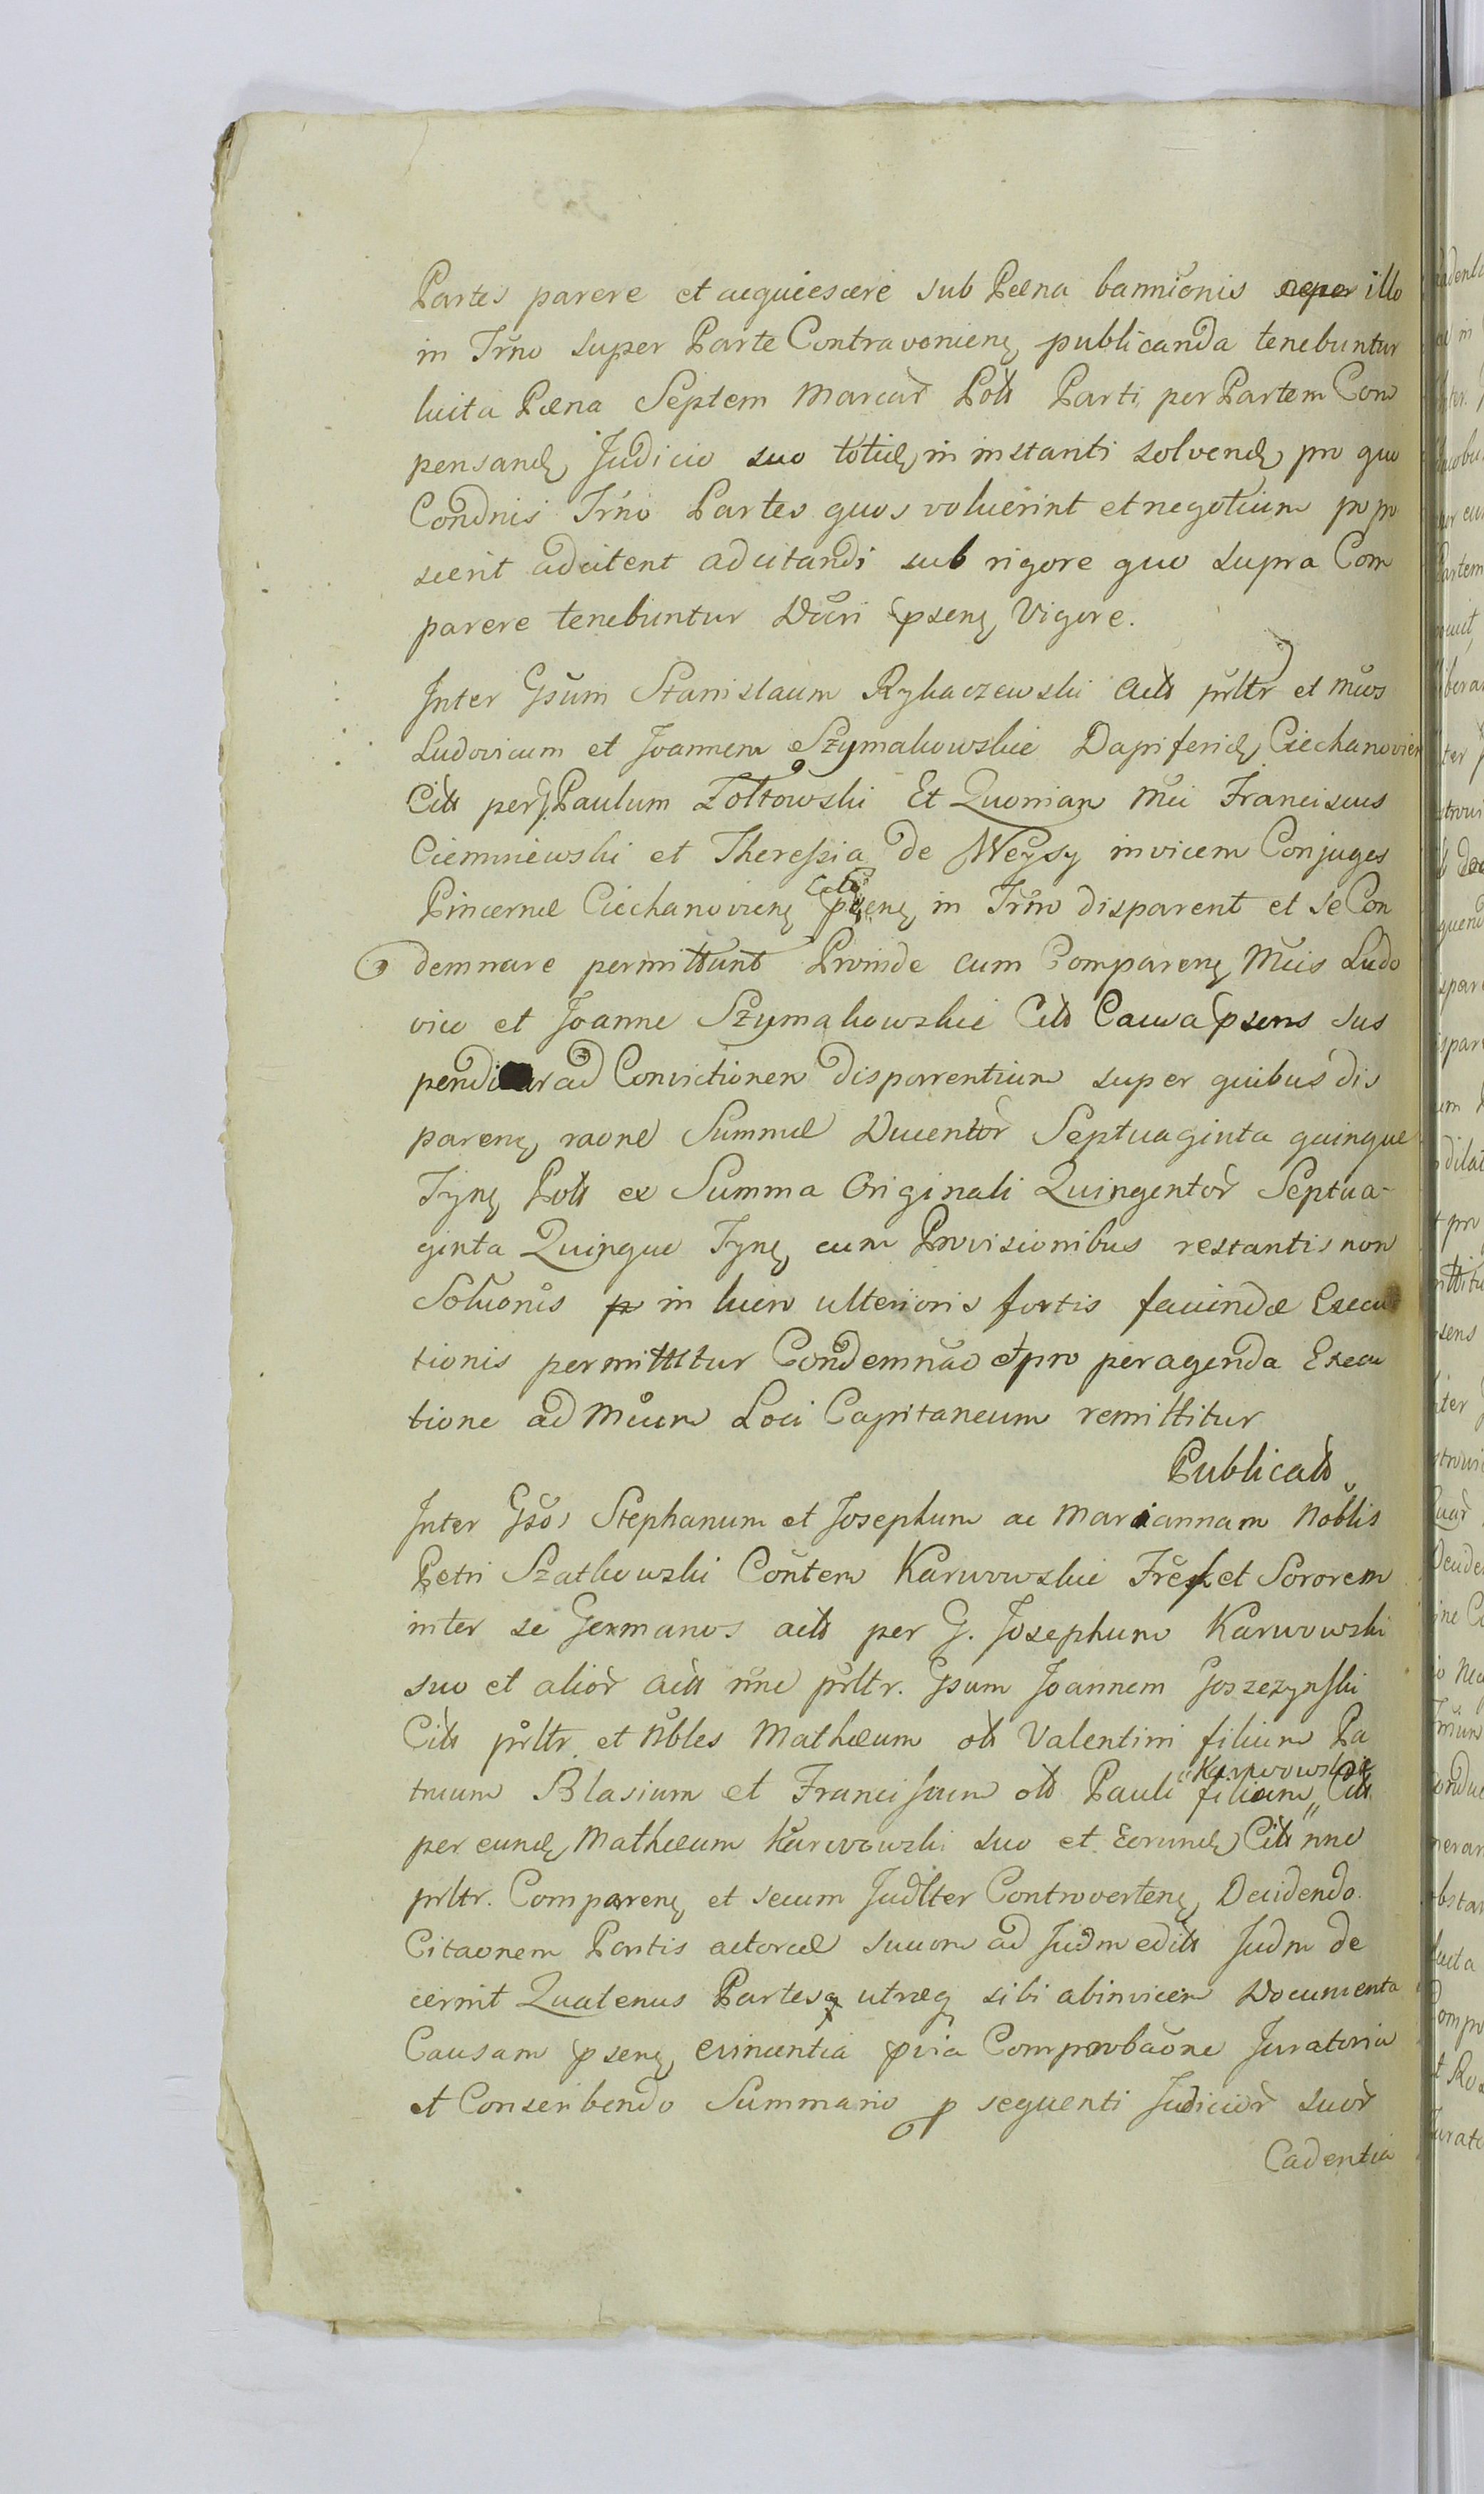 Partes parere et acquiescere sub Pœna bannīonis illo
in Trno super Parte Contravenienq publicanda tenebuntur
luita Pœna Septem Marcar Polt Parti per Partem Com
pensand Judicio suo totid in instanti solvend pro quo
Condnis Trno Partes quos voluerint et negotium popo
scerit adcitent adcitandi sub rigore quo supra Com
parere tenebuntur Dcri psenq Vigore.
Inter Gsum Stanislaum Rykaczewski Actt prltr et Mcos
Ludovicum et Joannem Szymakowskie Dapiferid Ciechanovien
Citt per G Paulum Zołtowski Et Quoniam Mci Franciscus
Ciemniewski et Theressia de Weysy invicem Conjuges
Pincernæ Ciechanovienq Citti in Trno disparent et se Con
demnare permittunt Proinde cum Comparenq Mcis Ludo
vico et Joanne Szymakowskie Citt Causa psens sus
penditur ad Convictionem disparentium super quibus dis
parenq raone Summæ Ducentor Septuaginta quinque
Tynq Polt ex Summa Originali Quingentor Septua-
ginta Quinque Tynq cum Provisionibus restantis non
Soluonis in lucro ulterioris fortis faciendæ Execu
tionis permittitur Condemnao et pro peragenda Execu
tione ad Mcum Loci Capitaneum remittitur
Publicatt
Inter Gsos Stephanum et Josephum ac Mariannam Noblis
Petri Szatkowski Contem Karwowskie Fres et Sororem
inter se Germanos actt per G. Josephum Karwowski
suo et alior Actt nne prltr. Gsum Joannem Goszczynski
Citt prltr. et Nbles Mathæum olt Valentini filium Pa
truum Blasium et Franciscum olt Pauli filium Karwowskie Citt
per eund Mathæum Karwowski suo et Eorund Citt nne
prltr. Comparenq et secum Judlter Controvertenq Decidendo
Citaonem Partis actoreæ suum ad Judm editt Judm de
cernit Quatenus Partes utræq sibi abinvicem Documenta
Causam psenq evincentia pvia Comprobaone Juratoria
et Conscribendo Summario p sequenti Judicior suor
Cadentia